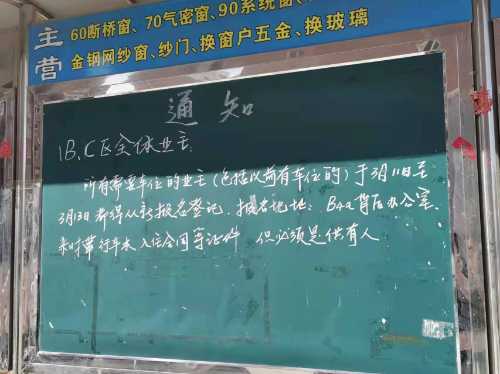 主营
60断桥窗、70气密窗、90系统窗、
金钢网纱窗、纱门、换窗户五金、换玻璃
通知
B、C区全体业主
所有需要车位的业主(包括以前有车位的)于3月11日至
3月13日都得从新报名登记,报名地址:B4a背后办公室,
来时带行车本入住合同等证件 但必须是供有人